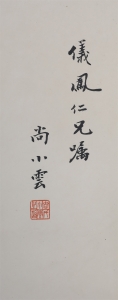 儀鳳仁兄嘱
尚小雲